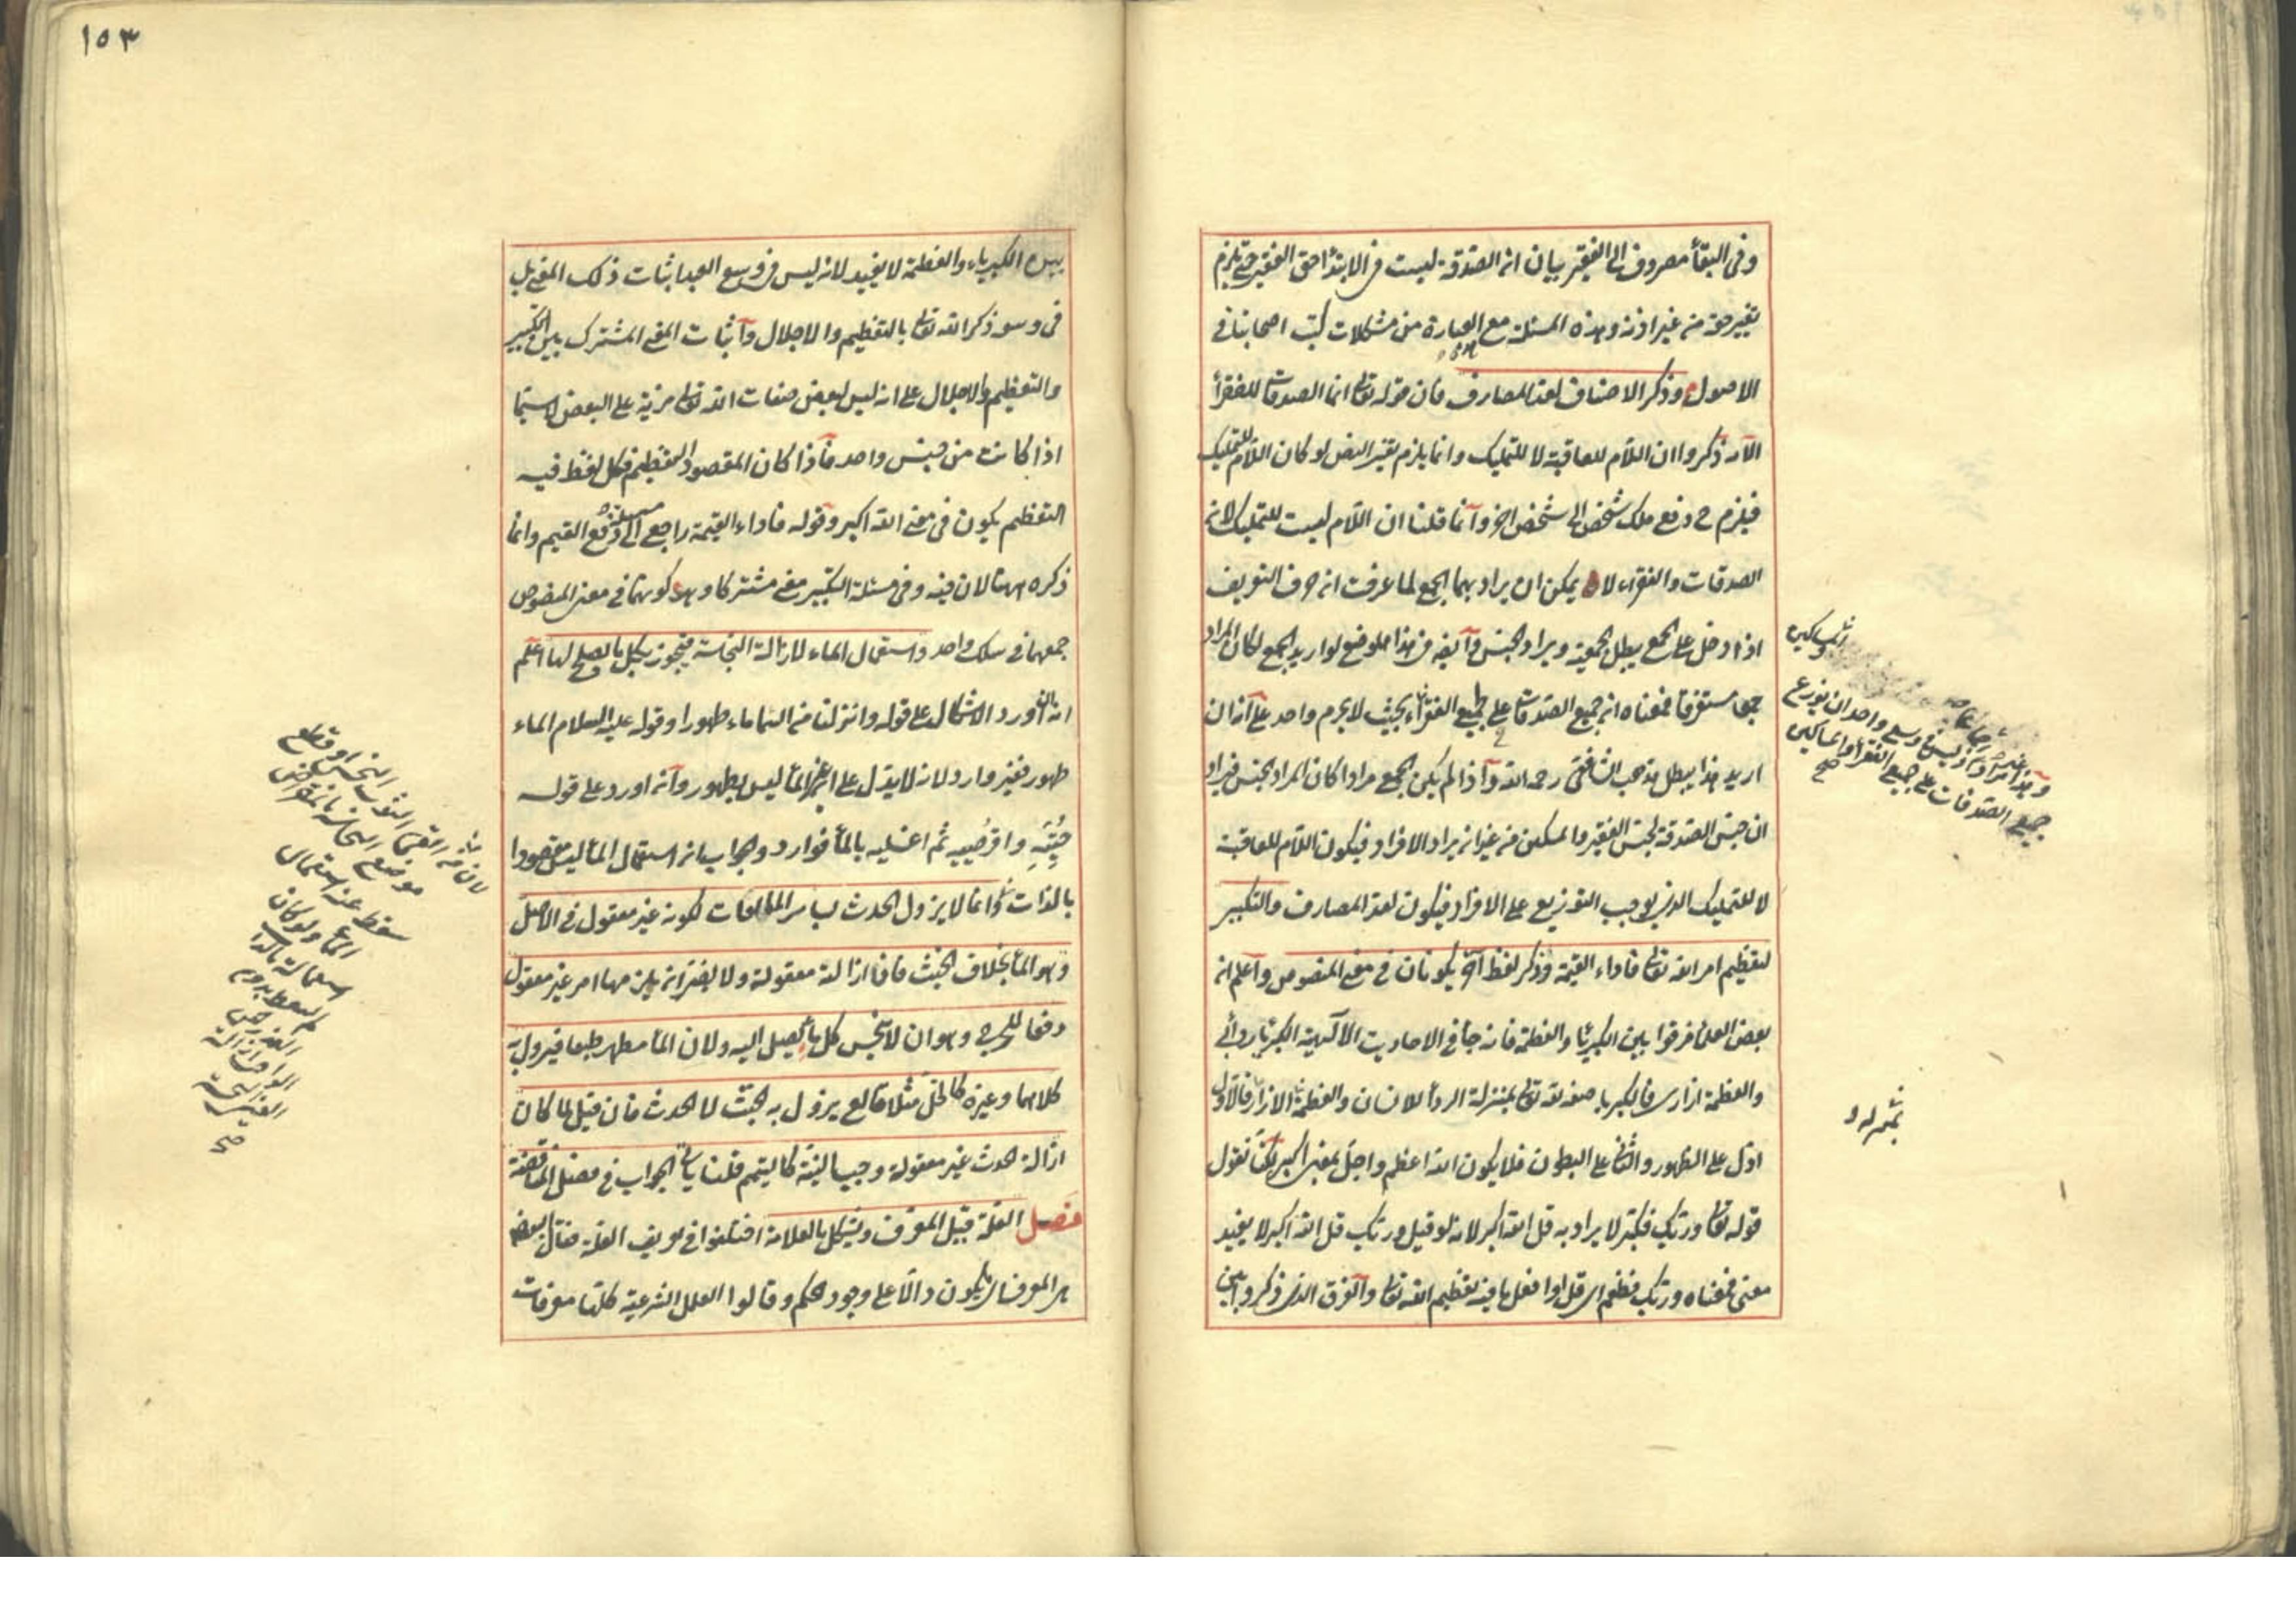 وفى البقأ مصروف الى الفقير بيان ان الصدقة ليست فى الابتدأ حق الفقير حتى يلزم
تغيير حقه من غير اذنه وهذه المسئلة مع العبارة من مشكلات كتب اصحابنا فى
الاصول وذكر الاصناف لعد المصارف فان قوله تعالى انما الصدقات للفقرأ
الآية ذكروا ان اللام للعاقبة لا للتمليك وانما يلزم تغير النص لو كان اللام للتمليك
فيلزم ح دفع ملك شخص الى شخص اخر وانما قلنا ان اللام ليست للتمليك لان
الصدقات والفقراء لا يمكن ان يراد بهما الجمع لما عرفت ان حرف التعريف
اذا دخل على الجمع يبطل الجمعية ويراد الجنس وايضه فى هذا الموضع لو اريد الجمع لكان المراد
جمعا مستغرقا فمعناه ان جميع الصدقات على جميع الفقراء بحيث لا يحرم واحد على انه ان
اريد هذا يبطل مذهب الشافعى رحمه الله واذا لم يكن الجمع مرادا كان المراد الجنس فيراد
ان جنس الصدقة لجنس الفقير والمسكين من غير ان يراد الافراد فيكون اللام للعاقبة
لا للتمليك الذى يوجب التوزيع على الافراد فيكون لعد المصارف والتكبير
لتعظيم امر الله تعالى فاداء القيمة وذكر لفظ آخر يكونان فى معنى المنصوص واعلم ان
بعض العلمأ فرقوا بين الكبريأ والعظمة فانه جأ فى الاحاديث الالهية الكبريأ ردائى
والعظمة ازارى فالكبريا صفة لله تعالى بمنزلة الردأ للانسان والعظمة الازار فالاول
ادل على الظهور والثانى على البطون فلا يكون الله اعظم واجل بمعنى اكبر لكنا نقول
قوله تعالى وربك فكبر لا يراد به قل الله اكبر لانه لو قيل وربك قل الله اكبر لا يفيد
معنى فمعناه وربك فعظم اى قل او افعل ما فيه تعظيم الله تعالى والفرق الذى ذكروا بين
والمساكين
جميع الصدقات على جميع الفقرأ والمساكين
صح
١٥٣
بين الكبرياء والعظمة لا يفيد لانه ليس فى وسع العبد اثبات ذلك المعنى بل
فى وسعه ذكر الله تعالى بالتعظيم والاجلال واثبات المعنى المشترك بين التكبير
والتعظيم والاجلال على انه ليس لبعض صفات الله تعالى مزية على البعض لا سيما
اذا كانت من جنس واحد فاذا كان المقصود التعظيم فكل لفظ فيه
التعظيم يكون فى معنى الله اكبر وقوله فاداء القيمة راجع الى مسئلة دفع القيم وانما
ذكره ههنا لان فيه وفى مسئلة التكبير معنى مشتركا وهو كونهما فى معنى المنصوص
جمعهما فى سلك واحد واستعمال الماء لازالة النجاسة فيجوز بكل ما يصلح لها اعلم
انه ان اورد الاشكال على قوله وانزلنا من السماء ماء طهورا وقوله عليه السلام الماء
طهور فغير وارد لانه لا يدل على ان غير المأ ليس بطهور وانه اورد على قوله
حتيه واقرصيه ثم اغسليه بالمأ فوارد والجواب ان استعمال المأ ليس مقصودا
بالذات وانما لا يزول الحدث بسائر المائعات لكونه غير معقول فى الاصل
وهو المأ بخلاف الخبث فان ازالة معقولة ولا يضر ان يلزمها امر غير معقول
دفعا للحرج وهو ان لا ينجس كل ما يصل اليه ولان المأ مطهر طبعا فيزول به
كلاهما وغيره كالخل مثلا قالع يزول به الخبث لا الحدث فان قيل لما كان
ازالة الحدث غير معقولة وجب النية كالتيمم قلنا يأتى الجواب فى فصل المناقضة
فصل العلة قيل المعرف ويشكل بالعلامة اختلفوا فى تعريف العلة فقال بعضهم
هى المعرف اى يكون دالا على وجود الحكم وقالوا العلل الشرعية كلها معرفات
لان من القى الثوب النجس او قطع
موضع النجاسة بالمقراض
سقط عنه استعمال
المأ ولو كان
صح